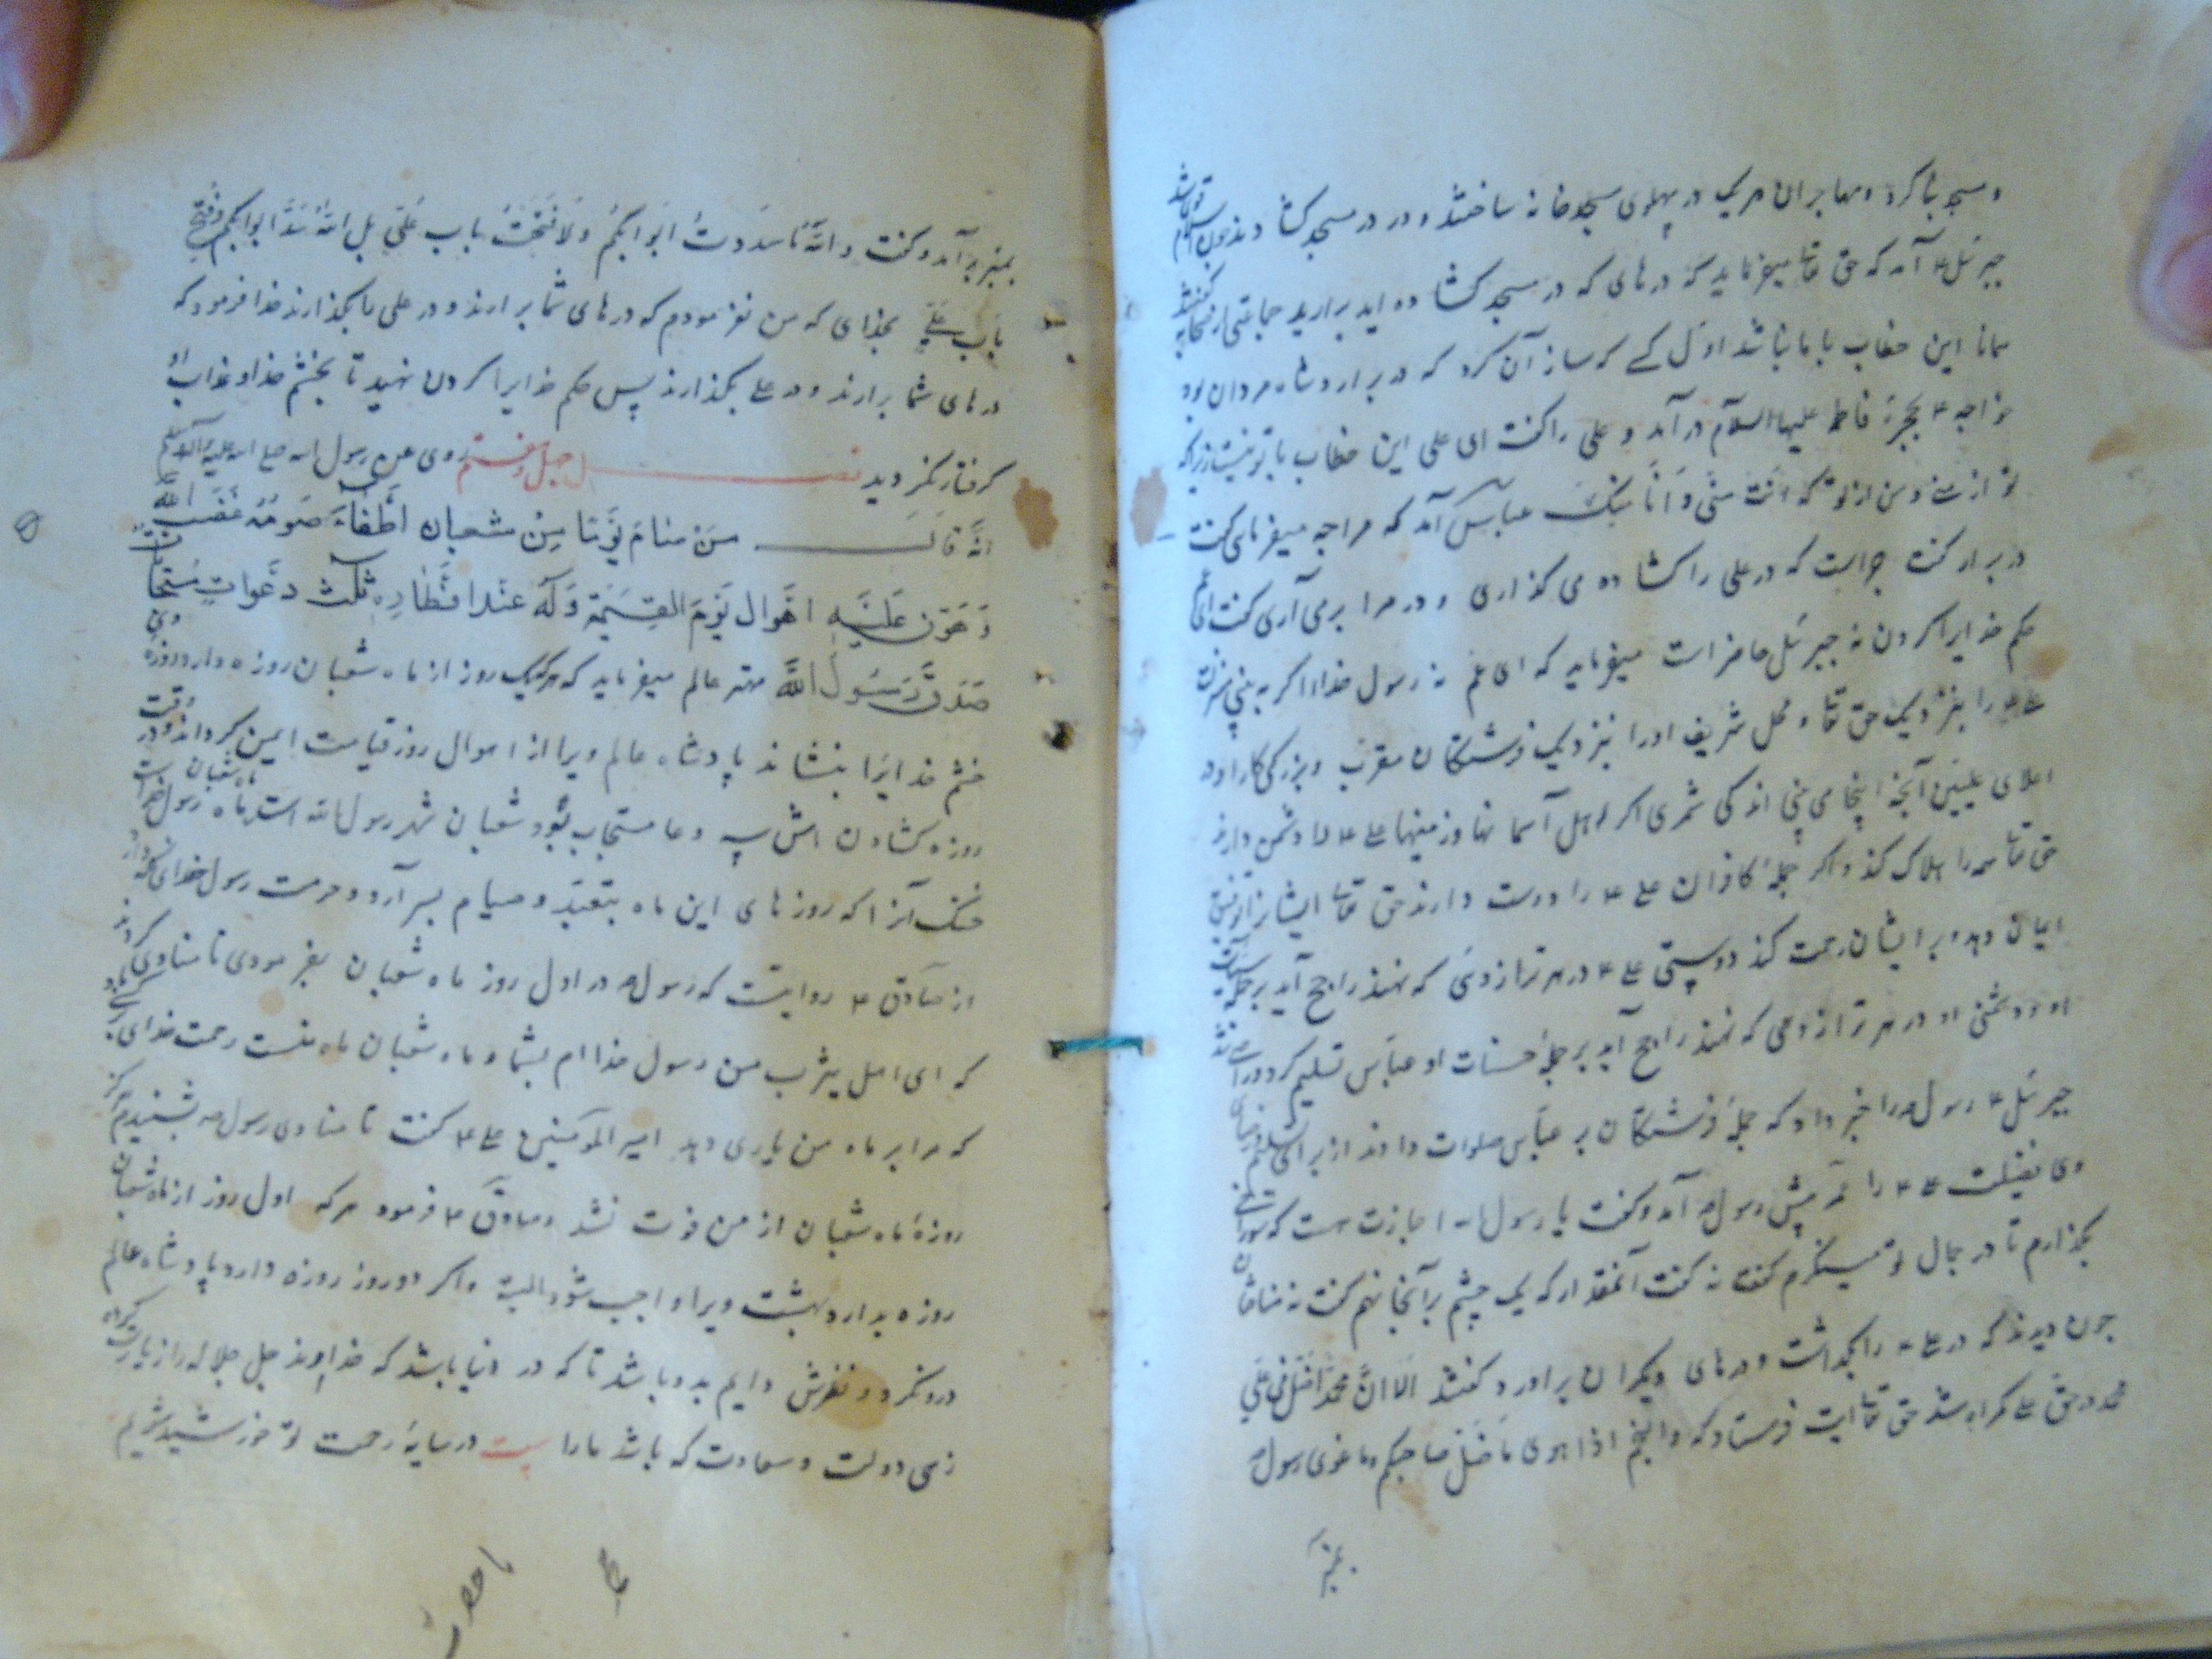 و مسجد بنا کرد و مهاجران هر یک در پهلوی مسجد خانه ساختند و در در مسجد کشادند چون اسلام قوی شد
جبرئیل ۴ آمد که حق تعا میفرماید که درهای که در مسجد کشاده اید برارید جماعتی از صحابه گفتند
همانا این خطاب با ما نباشد اول کسی که ساز آن کرد که در برارد شاه مردان بود
خواجه ۴ بحجرهٔ فاطمه علیها السلام در آمد و علی را گفت ای علی این خطاب با تو نیست زیرا که
تو از منی و من از تو که انت منّی و اَنَا مِنکَ عباس آمد که مرا چه میفرمای گفت
در برار گفت چراست که در علی را کشاده می گذاری و در مرا برمی آری گفت ای عم
حکم خدایرا گردن نه جبرئیل حاضر است میفرماید که ای عم نه رسول خدا اگر به بینی منزلت
علی ۴ را بنزدیک حق تعا و محل شریف او را بنزدیک فرشتکان مقرب و بزرگی کار او در
اعلای علیین آنچه اینجا می بینی اندکی شمری اگر اهل آسمانها و زمینها علی ۴ را دشمن دارند
حق تعا همه را هلاک کند و اگر جملهٔ کافران علی ۴ را دوست دارند حق تعا ایشانرا توفیق
ایمان دهد و بر ایشان رحمت کند دوستی علی ۴ در هر ترازوئی که نهند راجح آید بر جمله سیئات
او و دشمنی او در هر ترازوئی که نهند راجح آید بر جملهٔ حسنات او عباس تسلیم کرد و راضی شد
جبرئیل ۴ رسول را خبر داد که جملهٔ فرشتکان بر عباس صلوات دادند از برای تسلیم و رضای
وی بفضیلت علی ۴ را پیش رسول آمد و گفت یا رسول الله اجازت هست که سوراخی
بگذارم تا در جمال تو مینگرم گفت نه گفت آنمقدار که یک چشم بر آنجا نهم گفت نه منافقان
چون دیدند که در علی ۴ را بگذاشت و درهای دیگران براورد گفتند الا انّ محمّدا ضلّ فی علی
محمد در حق علی گمراه شد حق تعا آیت فرستاد که و النجم اذا هوی ما ضل صاحبکم و ما غوی رسول
بمنبر
بمنبر بر آمد و گفت و اللّه مَا سَدَدتُ ابَوابَکُم وَ لَا فَتَحتُ بابَ عَلیٍّ بل اللّهُ سَدَّ ابوابکم و فتح
بابَ علیّ بخدای که من نفرمودم که درهای شما برارند و در علی بگذارند خدا فرمود که
درهای شما برارند و در علی بگذارند پس حکم خدایرا گردن نهید تا بخشم خدا و عذاب او
گرفتار نگردید فصل چهل و هفتم رُوی عن رسول الله صلی الله علیه و آله و سلم
انَّه قالَ مَن صامَ یَومًا مِن شعبان اَطفَاءَ صَومُهُ غَضَبَ اللّه
وَ هَوّن عَلَیه اَهوالَ یَومَ القِیمَة وَ لَه عندَ افطَارِه ثلث دعَوات مُستجابات
صَدَقَ رَسُولُ اللّه مهتر عالم میفرماید که هر که یک روز از ماه شعبان روزه دارد روزه وی
خشم خدایرا بنشاند پادشاه عالم ویرا از اهوال روز قیامت ایمن گرداند و در وقت
روزه کشادن اش سه دعا مستجاب بود شعبان شهر رسول الله است ماه شعبان ماه رسول خداست
خنک آنرا که روزهای این ماه بتعبد و صیام بسر آرد و حرمت رسول خدای نگه دارد
از صادق ۴ روایتست که رسول در اول روز ماه شعبان بفرمودی تا منادی کردند
که ای اهل یثرب من رسول خداام بشما و ماه شعبان ماه منست رحمت خدای بر کسی باد
که مرا بر ماه من یاری دهد امیر المؤمنین علی ۴ گفت تا منادی رسول بشنیدم هرگز
روزهٔ ماه شعبان از من فوت نشد و صادق ۴ فرمود هر که اول روز از ماه شعبان
روزه بدارد بهشت ویرا واجب شود البته و اگر دو روز روزه دارد پادشاه عالم
درو نگرد و نظرش دایم بدو باشد تا که در دنیا باشد که خداوند جل جلاله را زیارت کند
زهی دولت و سعادت که باشد مارا بیت در سایهٔ رحمت تو خورشید شویم